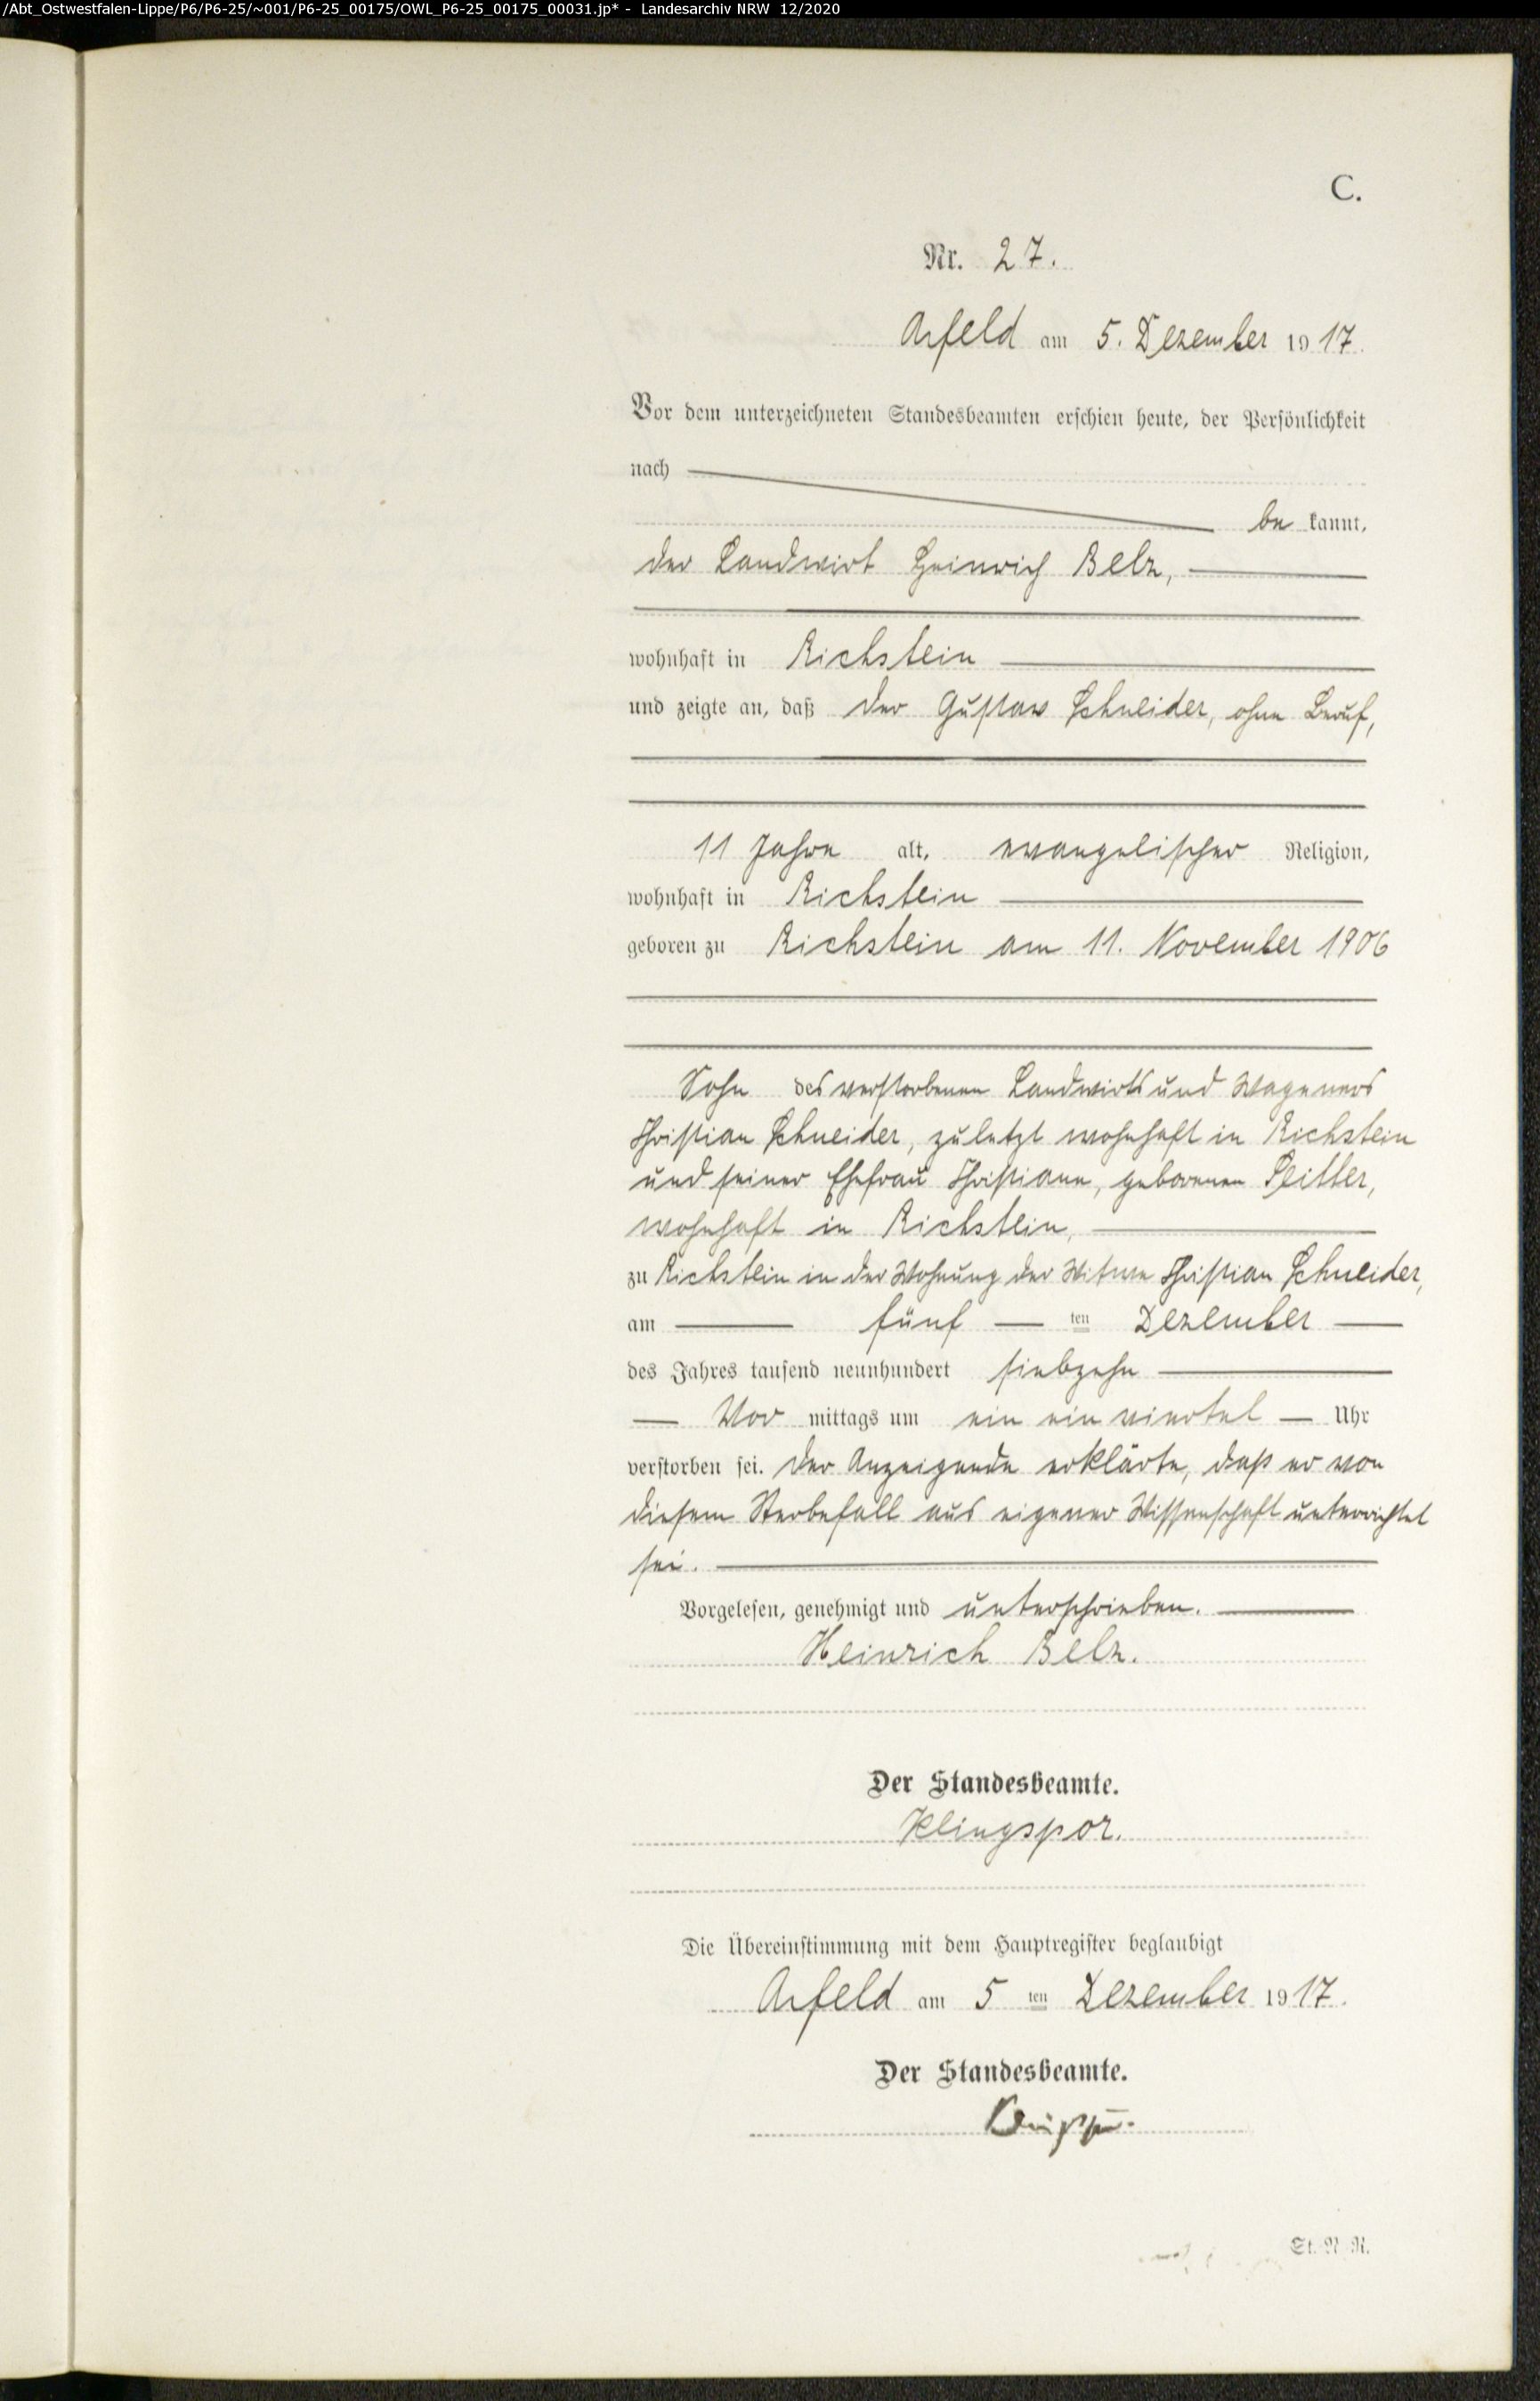 /Abt_Ostwestfalen-Lippe/P6/P6-25/~001/P6-25_00175/OWL_P6-25_00175_00031.jp* - Landesarchiv NRW 12/2020
C.
Nr. 27.
Arfeld am 5. Dezember 1917.
Vor dem unterzeichneten Standesbeamten erschien heute, der Persönlichkeit
nach
be kannt,
der Landwirt Heinrich Belz,
wohnhaft in Richstein
und zeigte an, daß der Gustav Schneider, ohne Beruf,
11 Jahre alt, evangelischer Religion,
wohnhaft in Richstein
geboren zu Richstein am 11. November 1906
Sohn des verstorbenen Landwirts und Wageners
Christian Schneider, zuletzt wohnhaft in Richstein
und seiner Ehefrau Christiane, geborenen
wohnhaft in Richstein,
zu Richstein in der Wohnung der Witwe Christian Schneider,
am fünf ten Dezember
des Jahres tausend neunhundert siebzehn
Vor mittags um ein ein viertel Uhr
verstorben sei. Der Anzeigende erklärte, daß er von
diesem Sterbefall aus eigener Wissenschaft unterrichtet
sei.
Vorgelesen, genehmigt und unterschrieben.
Heinrich Belz.
Der Standesbeamte.
Klingspor.
Die Übereinstimmung mit dem Hauptregister beglaubigt
Arfeld am 5 ten Dezember 1917.
Der Standesbeamte.